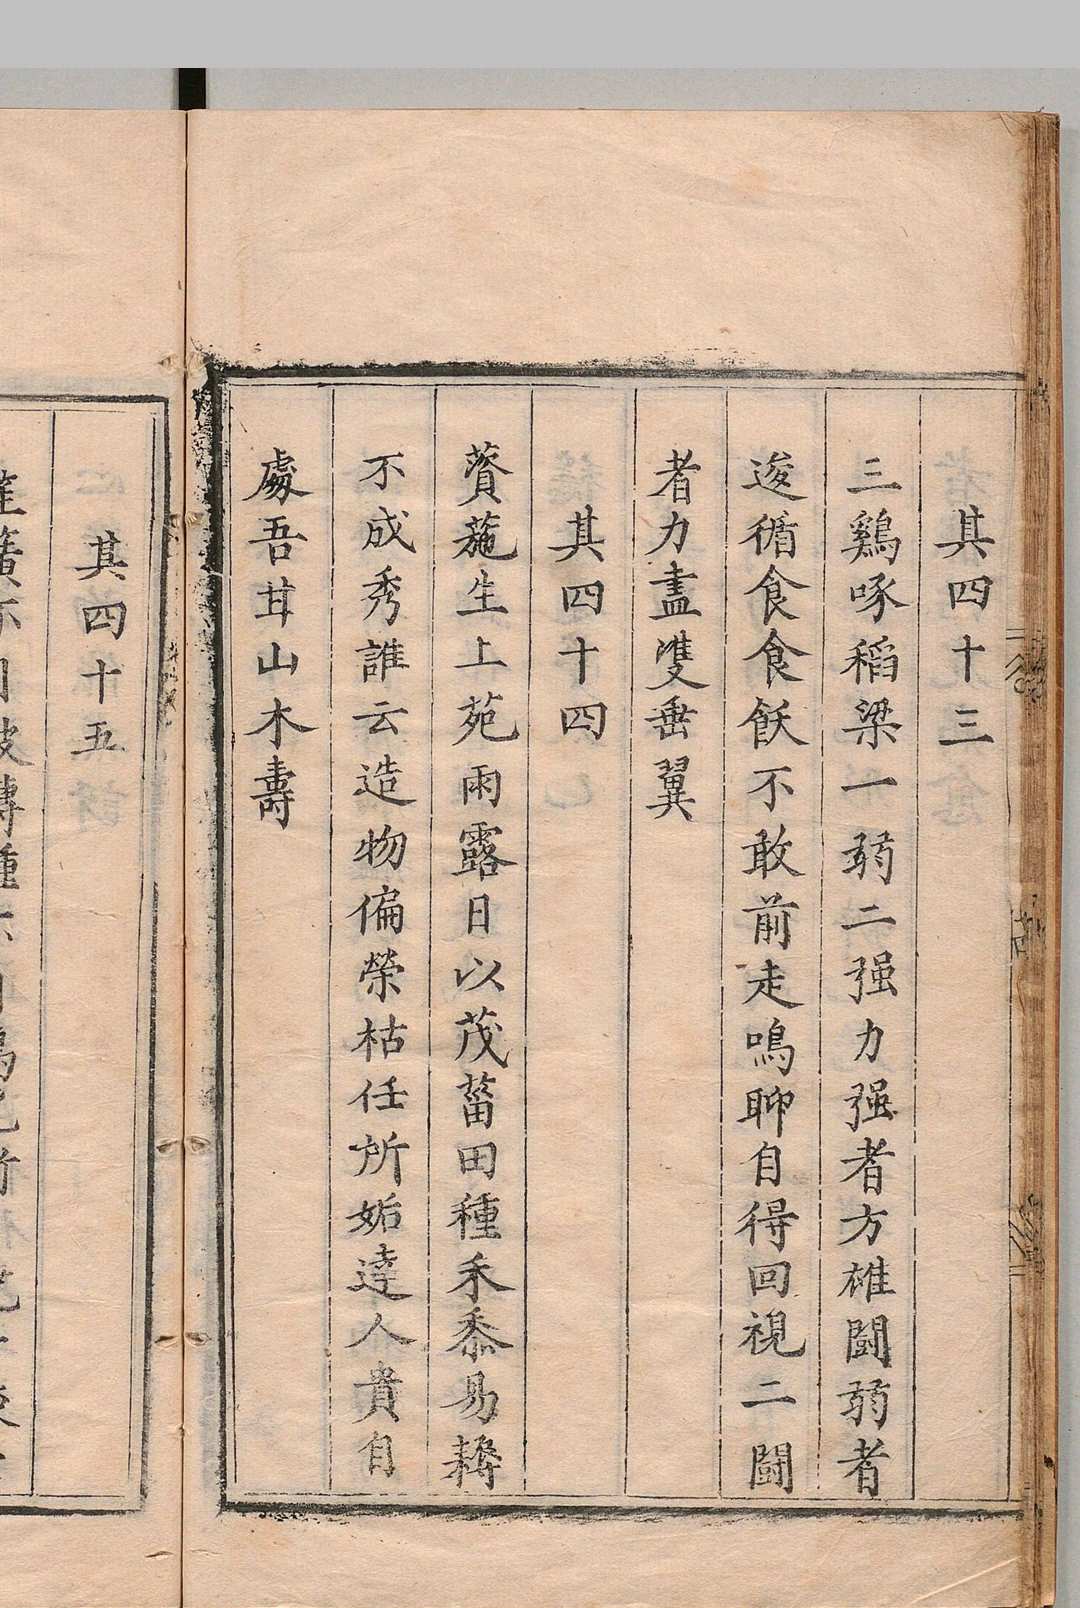 其四十三
三鷄啄稻梁一弱二强力强者方雄鬪弱者
逡循食食飫不敢前走鳴聊自得回視二鬪
者力盡雙垂翼
其四十四
薋葹生上苑雨露日以茂菑田種禾黍易耨
不成秀誰云造物偏榮枯任所姤達人貴自
處吾甘山木壽
其四十五